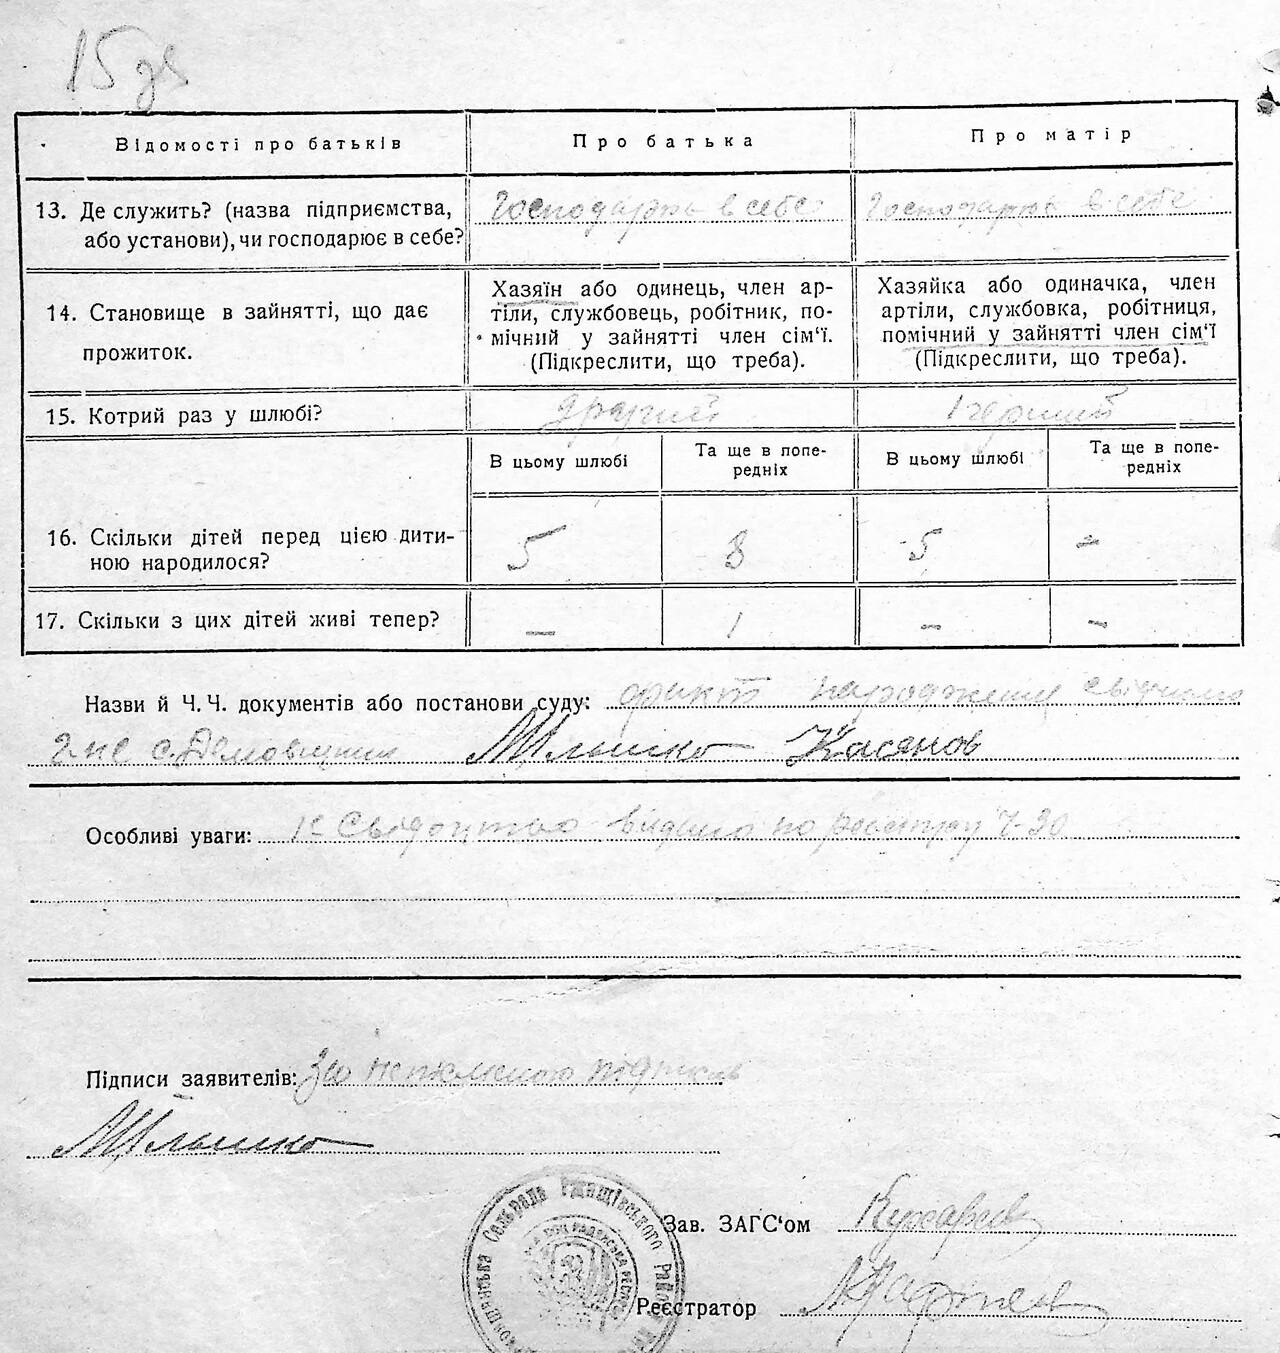 15 зв
Відомості про батьків
Про батька
Про матір
13. Де служить? (назва підприємства,
або установи), чи господарює в себе?
Господарює в себе
Господарює в себе
14. Становище в зайнятті, що дає
прожиток.
Хазяїн або одинець, член ар-
тіли, службовець, робітник, по-
мічний у зайнятті член сім'ї.
(Підкреслити, що треба).
Хазяйка або одиначка, член
артіли, службовка, робітниця,
помічний у зайнятті член сім'ї
(Підкреслити, що треба).
15. Котрий раз у шлюбі?
другий
перший
В цьому шлюбі
Та ще в попе-
редніх
В цьому шлюбі
Та ще в попе-
редніх
16. Скільки дітей перед цією дити-
ною народилося?
5
3
5
-
17. Скільки з цих дітей живі тепер?
-
1
-
-
Назви й Ч.Ч. документів або постанови суду: факт народження свідчимо
г-не с. Касянов
Особливі уваги: Свідоцтво видано по реєстру Ч-30
Підписи заявителів: За неписьменого підписав
Зав. ЗАГС'ом
Реєстратор
Сельрада Ржищівського Район